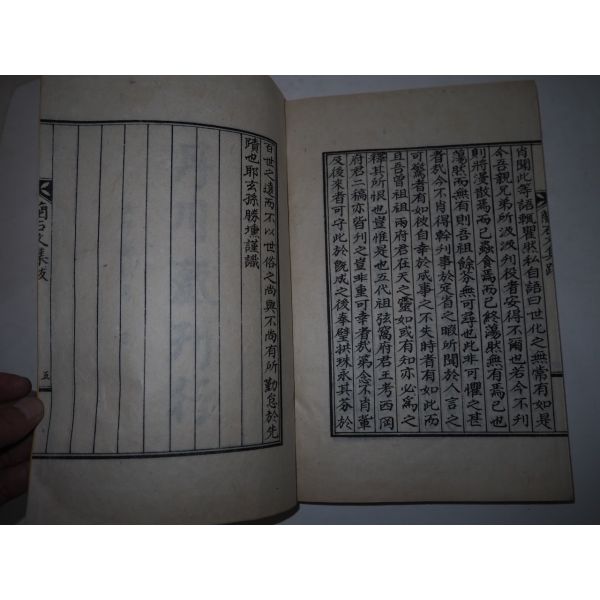 肖聞此等語輒瞿然私自語曰世化之無常有如是
今吾親兄弟所汲汲刋役者安得不爾也若今不刋
則將漫散焉而已蟲食焉而已終蕩然無有焉已也
蕩然而無有則吾祖餘芬無可尋也此非可懼之甚
者哉今不肖得幹刋事於定省之暇所聞於人言之
可驚者有如彼自幸於成事之不失時者有如此而
且吾曾祖祖兩府君在天之靈如或有知亦必爲之
釋其所恨也豈惟是也五代祖弦窩府君王考西岡
府君二稿亦皆刋之豈非重可幸者哉第念不肖軰
及後來者可守此於旣成之後奉璧拱珠永其芬於
百世之遠而不以世俗之尚與不尚有所勤怠於先
蹟也耶玄孫勝壎謹識
蘭石文集跋
五